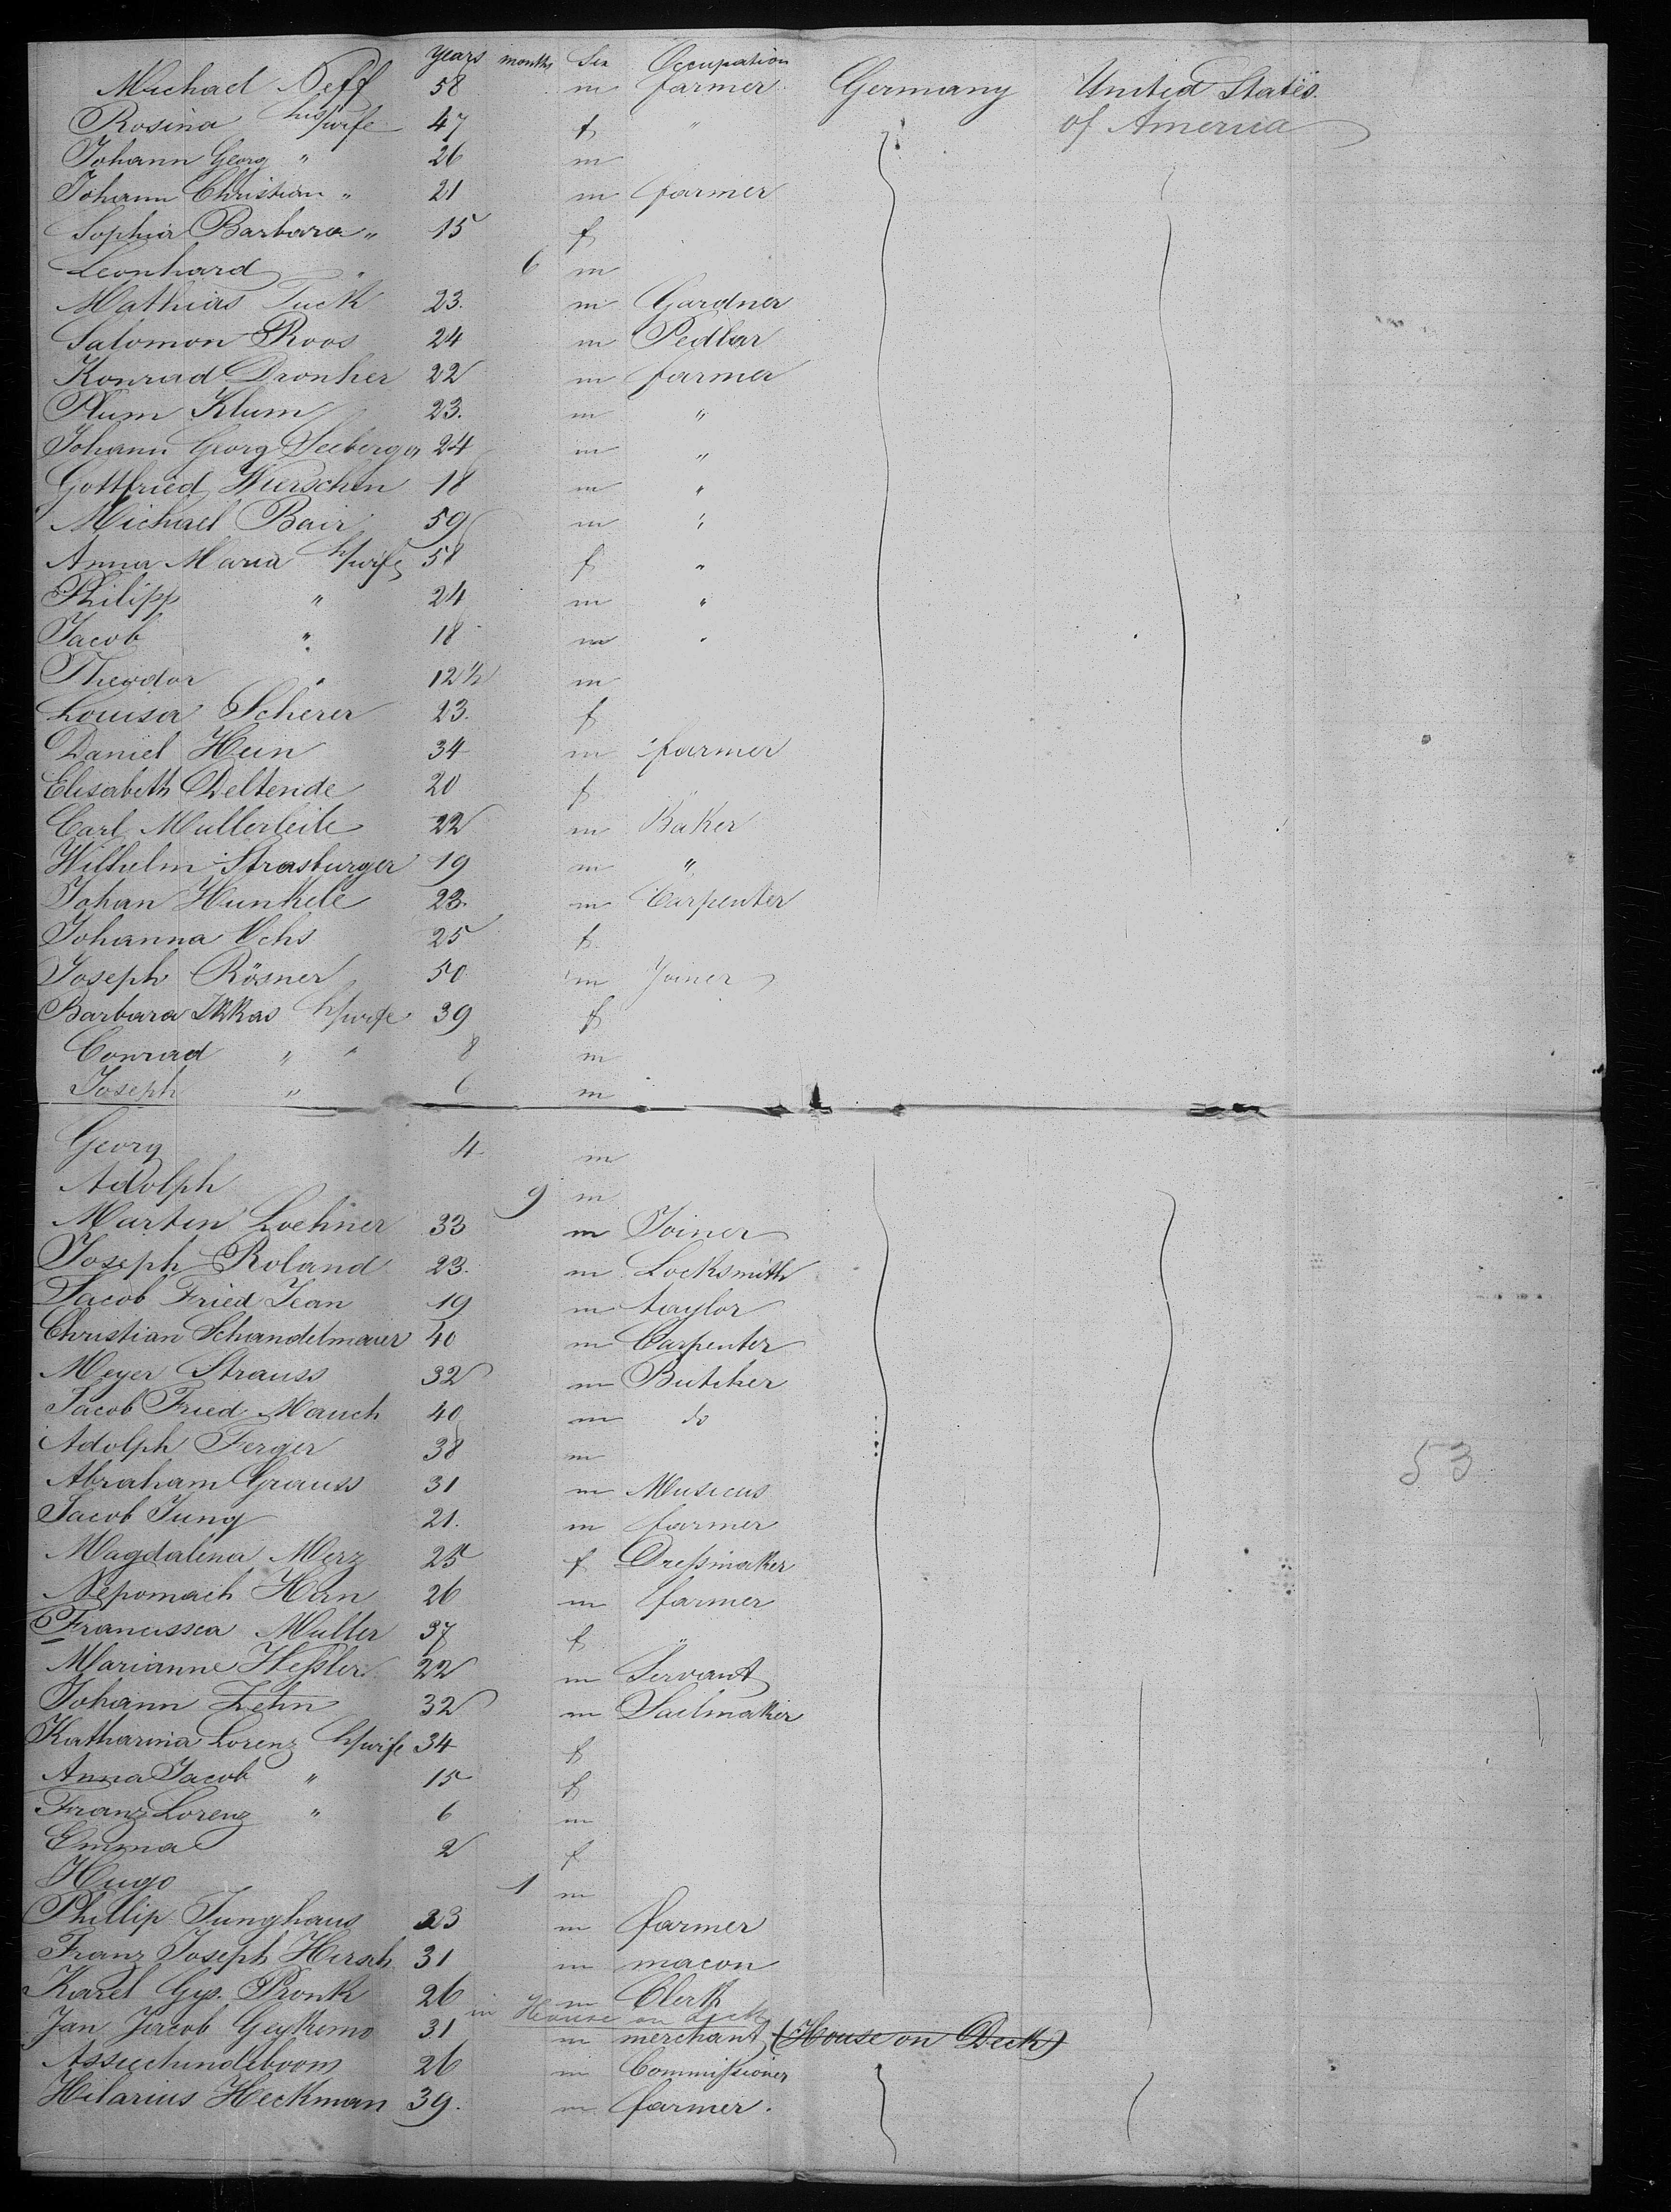 years months Sex Occupation
Michael Neff 58 m farmer Germany United States
Rosina his/wife 47 f " of America
Johann Georg " 26 m
Johann Christian " 21 m farmer
Sophia Barbara " 15 f
Leonhard " 6 m
Mathias Tuck 23. m Gardner
Salomon Roos 24 m Pedlar
Konrad Dronher 22 m farmer
Plum Klum 23. m "
Johann Georg Seeberger 24 m "
Gottfried Wierschen 18 m "
Michael Bair 59 m "
Anna Maria h/wife 58 f "
Philipp " 24 m "
Jacob " 18 m "
Theodor " 12½ m
Louisa Scherer 23. f
Daniel Hein 34 m farmer
Elisabeth Deltende 20 f
Carl Mullerleile 22 m Baker
Wilhelm Strasburger 19 m "
Johan Hunkele 23. m Carpenter
Johanna Ochs 25 f
Joseph Rösner 50 m Joiner
Barbara h/wife 39 f
Conrad " " 8 m
Joseph " 6 m
Georg 4 m
Adolph 9 m
Martin Lochner 33 m Joiner
Joseph Roland 23. m Locksmith
Jacob Fried Jean 19 m taylor
Christian Schandelmaier 40 m Carpenter
Meyer Strauss 32 m Butcher
Jacob Fried Mauch 40 m do
Adolph Ferger 38 m
Abraham Grauss 31 m Musicus
Jacob Jung 21. m farmer
Magdalena Merz 25 f Dressmaker
Nepomach Horn 26 m farmer
Francissca Muller 37 f "
Marianne Hessler 22 m Servant
Johann Zehn 32 m Sailmaker
Katharina Lorenz h/wife 34 f
Anna Jacob " 15 f
Franz Lorenz " 6 m
Emma 2 f
Hugo 1 m
Phillip Junghans 23 m farmer
Franz Joseph Hirsch 31 m macon
Karel Gys. Pronk 26 m Clerk
in House on deck
Jan Jacob Geykema 31 m merchant (House on Deck)
26 m Commissioner
Hilarius Heckman 39. m farmer.
53